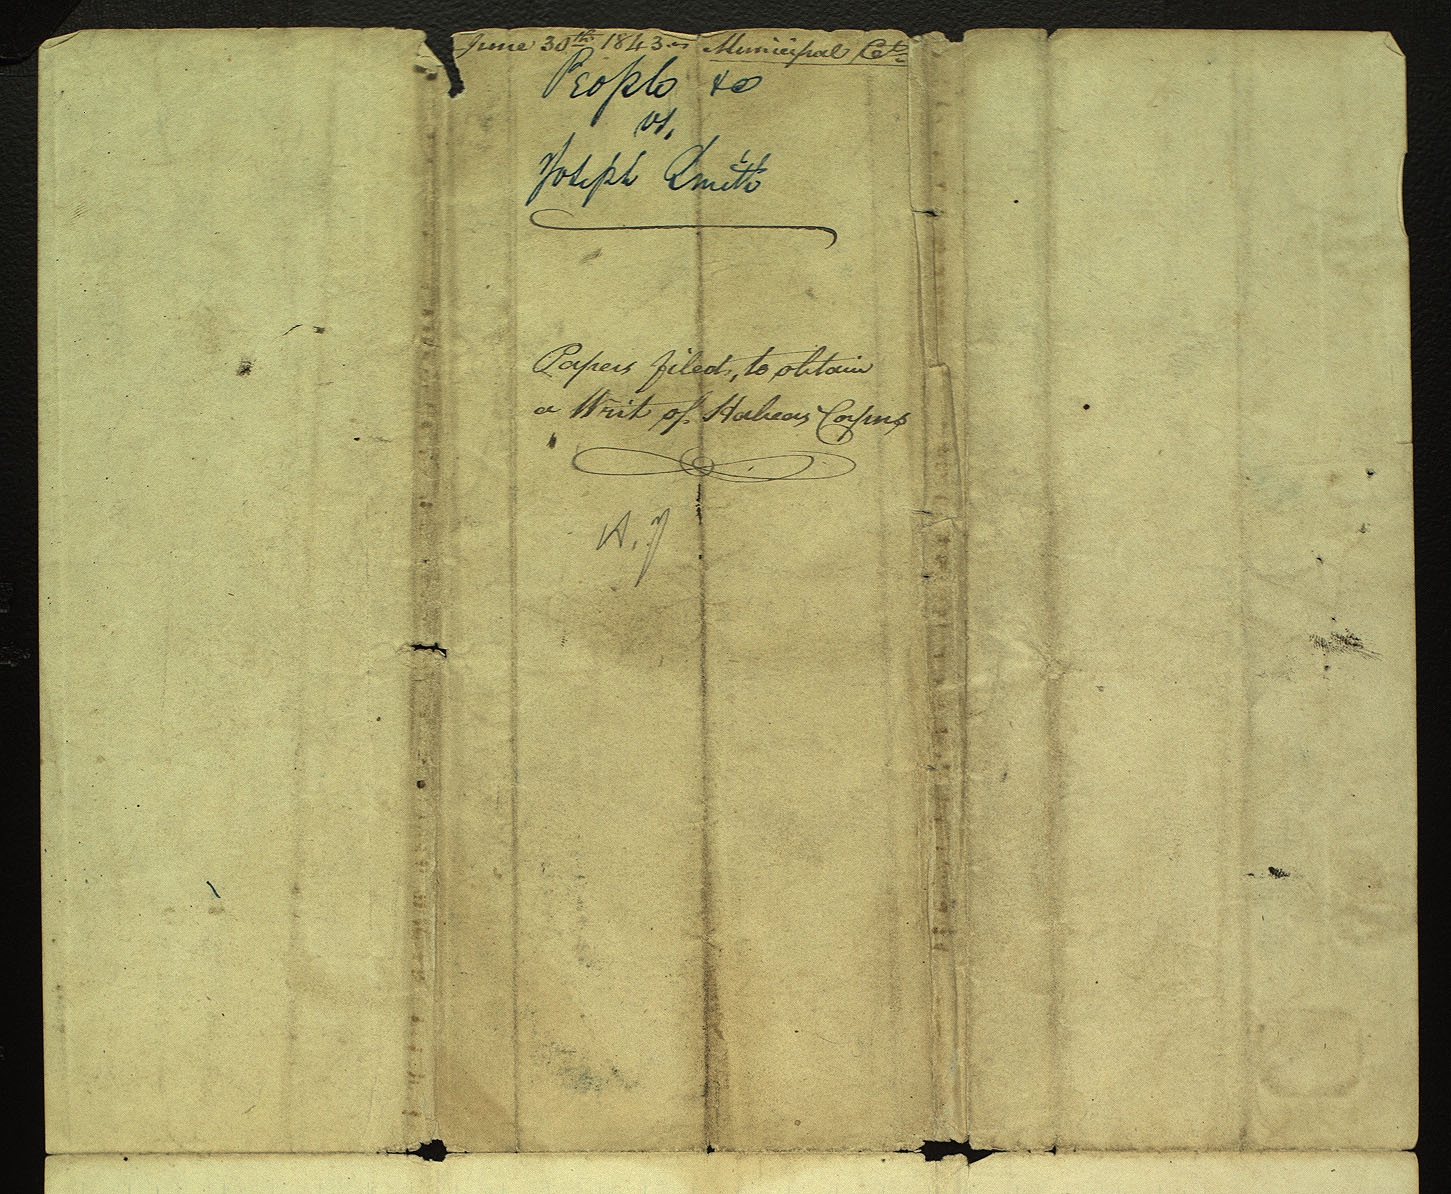 June 30th 1843 Municipal Ct.
People &c
vs.
Joseph Smith
Papers filed, to obtain
a Writ of Habeas Corpus